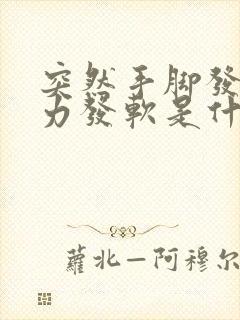 突然手脚發
力發軟是什
蘿北—阿穆尔